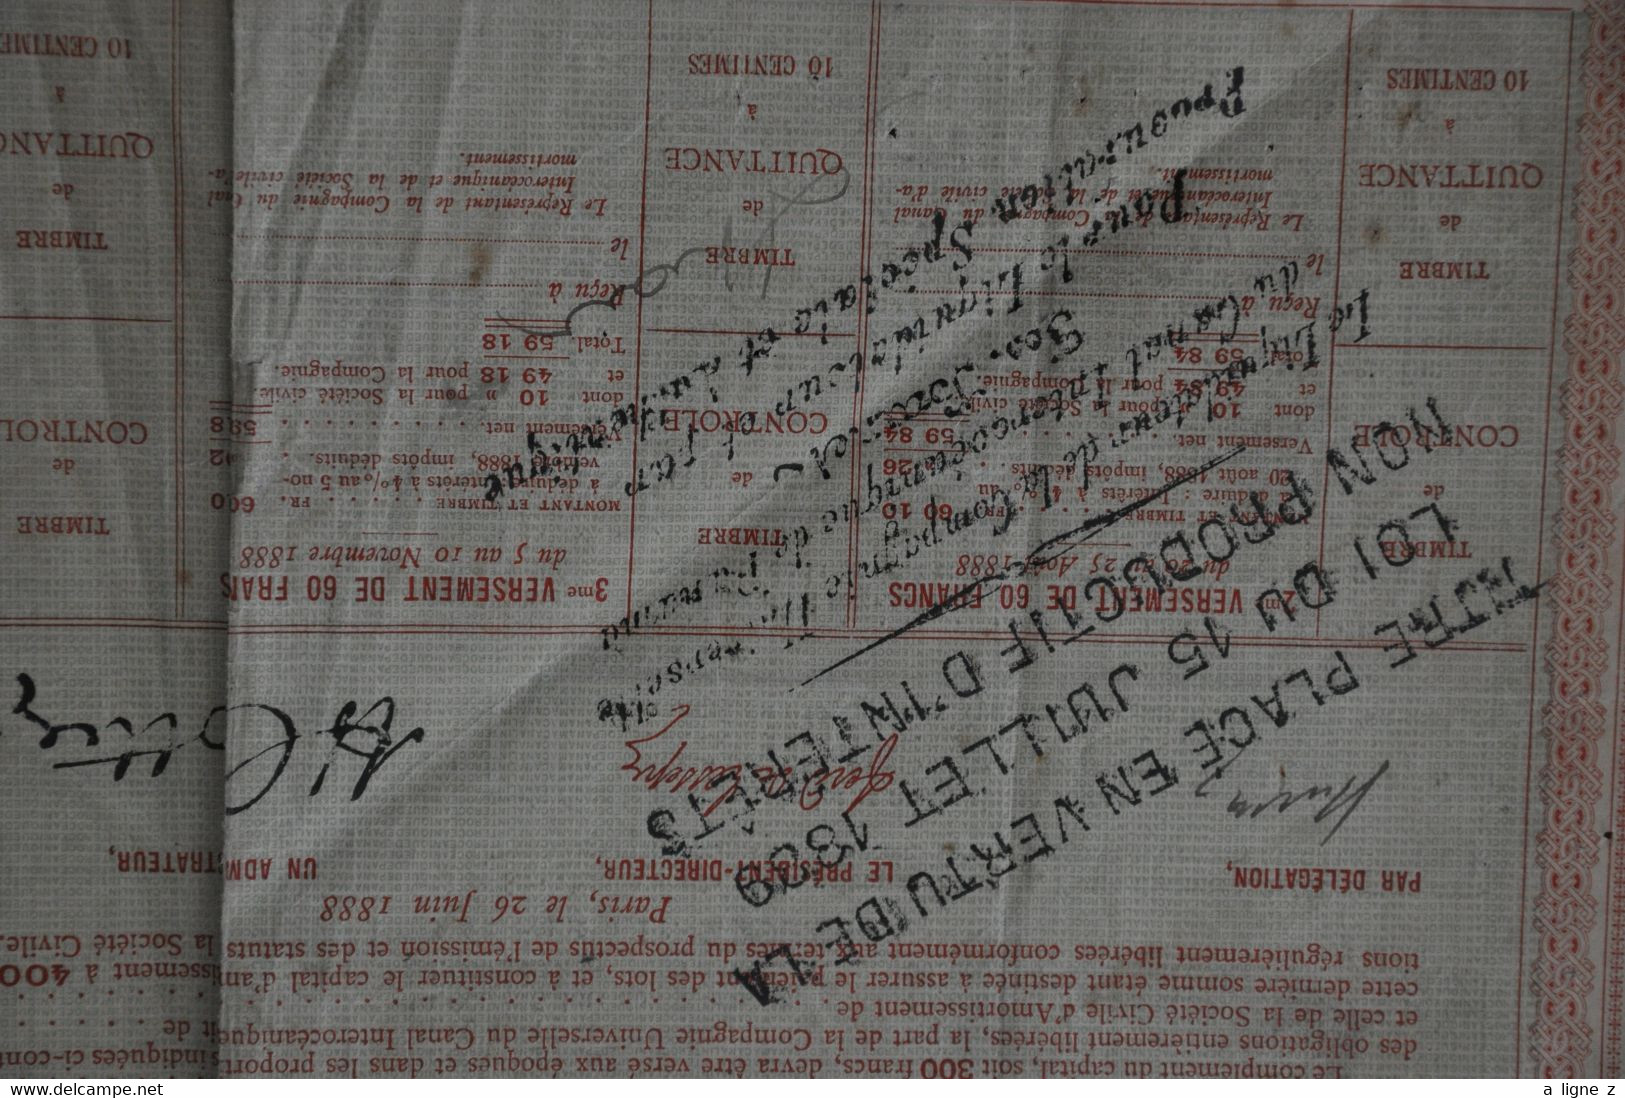 Le complément du capital, soit 300 francs, devra être versé aux époques et dans les
des obligations entièrement libérées, la part de la Compagnie Universelle du Canal Interocéanique
et celle de la Société Civile d'Amortissement de
cette dernière somme étant destinée à assurer le paiement des lots, et à constituer le capital
tions régulièrement libérées conformément aux termes du prospectus de l'émission et des statuts
indiquées ci-
à 400
la Société Civile.
Paris, le 26 Juin 1888
PAR DÉLÉGATION,
LE PRÉSIDENT-DIRECTEUR,
UN
TITRE PLACÉ EN VERTU DE LA
LOI DU 15 JUILLET ET 1889
NON PRODUCTIF D'INTÉRÊTS
Le Liquidateur de la Compagnie Universelle
du Canal Interocéanique de Panama
Pour le Liquidateur et par
Procuration Spéciale et Authentique
2me VERSEMENT DE 60 FRANCS
du 20 au 25 Août 1888
MONTANT ET TIMBRE FR. 60 10
à déduire : Intérêts à 4 % du
20 août 1888, impôts déduits . 26
Versement net. 59 84
dont 10 » pour la Société civile
et 49 84 pour la Compagnie.
Total 59 84
Reçu à
le
Le Représentant de la Compagnie du Canal
Interocéanique et de la Société civile d'a-
mortissement.
3me VERSEMENT DE 60
du 5 au 10 Novembre 1888
MONTANT ET TIMBRE FR. 60
à déduire : Intérêts à 4 % au 5 no-
vembre 1888, impôts déduits.
Versement net
dont 10 » pour la Société civile
et 49 18 pour la Compagnie.
Total. 59 18
Reçu à
le
Le Représentant de la Compagnie du Canal
Interocéanique et de la Société civile d'a-
mortissement.
TIMBRE
de
CONTROLE
TIMBRE
de
QUITTANCE
à
10 CENTIMES
TIMBRE
de
CONTROLE
TIMBRE
de
QUITTANCE
à
10 CENTIMES
TIMBRE
de
CONTROL
TIMBRE
de
QUITTANC
à
10 CENTIMES
www.delcampe.net
a ligne z